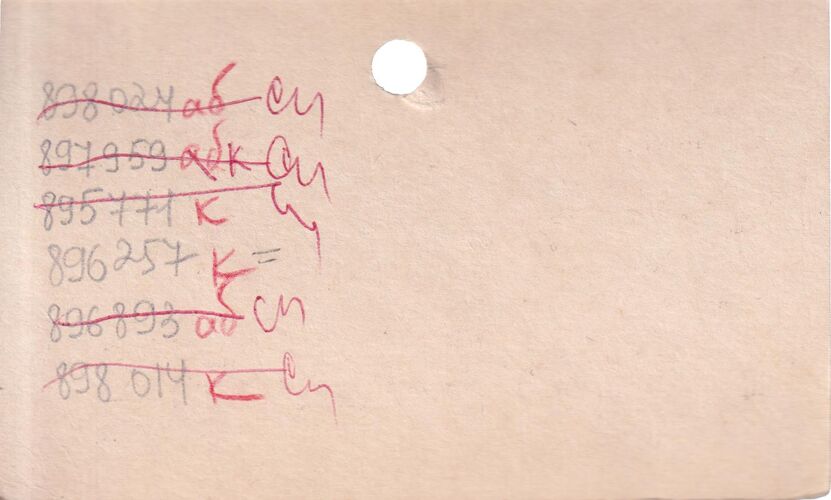 898024 аб Сч
897959 абк Сч
895771 к Сч
896257 к =
896893 аб Сч
898014 к Сч